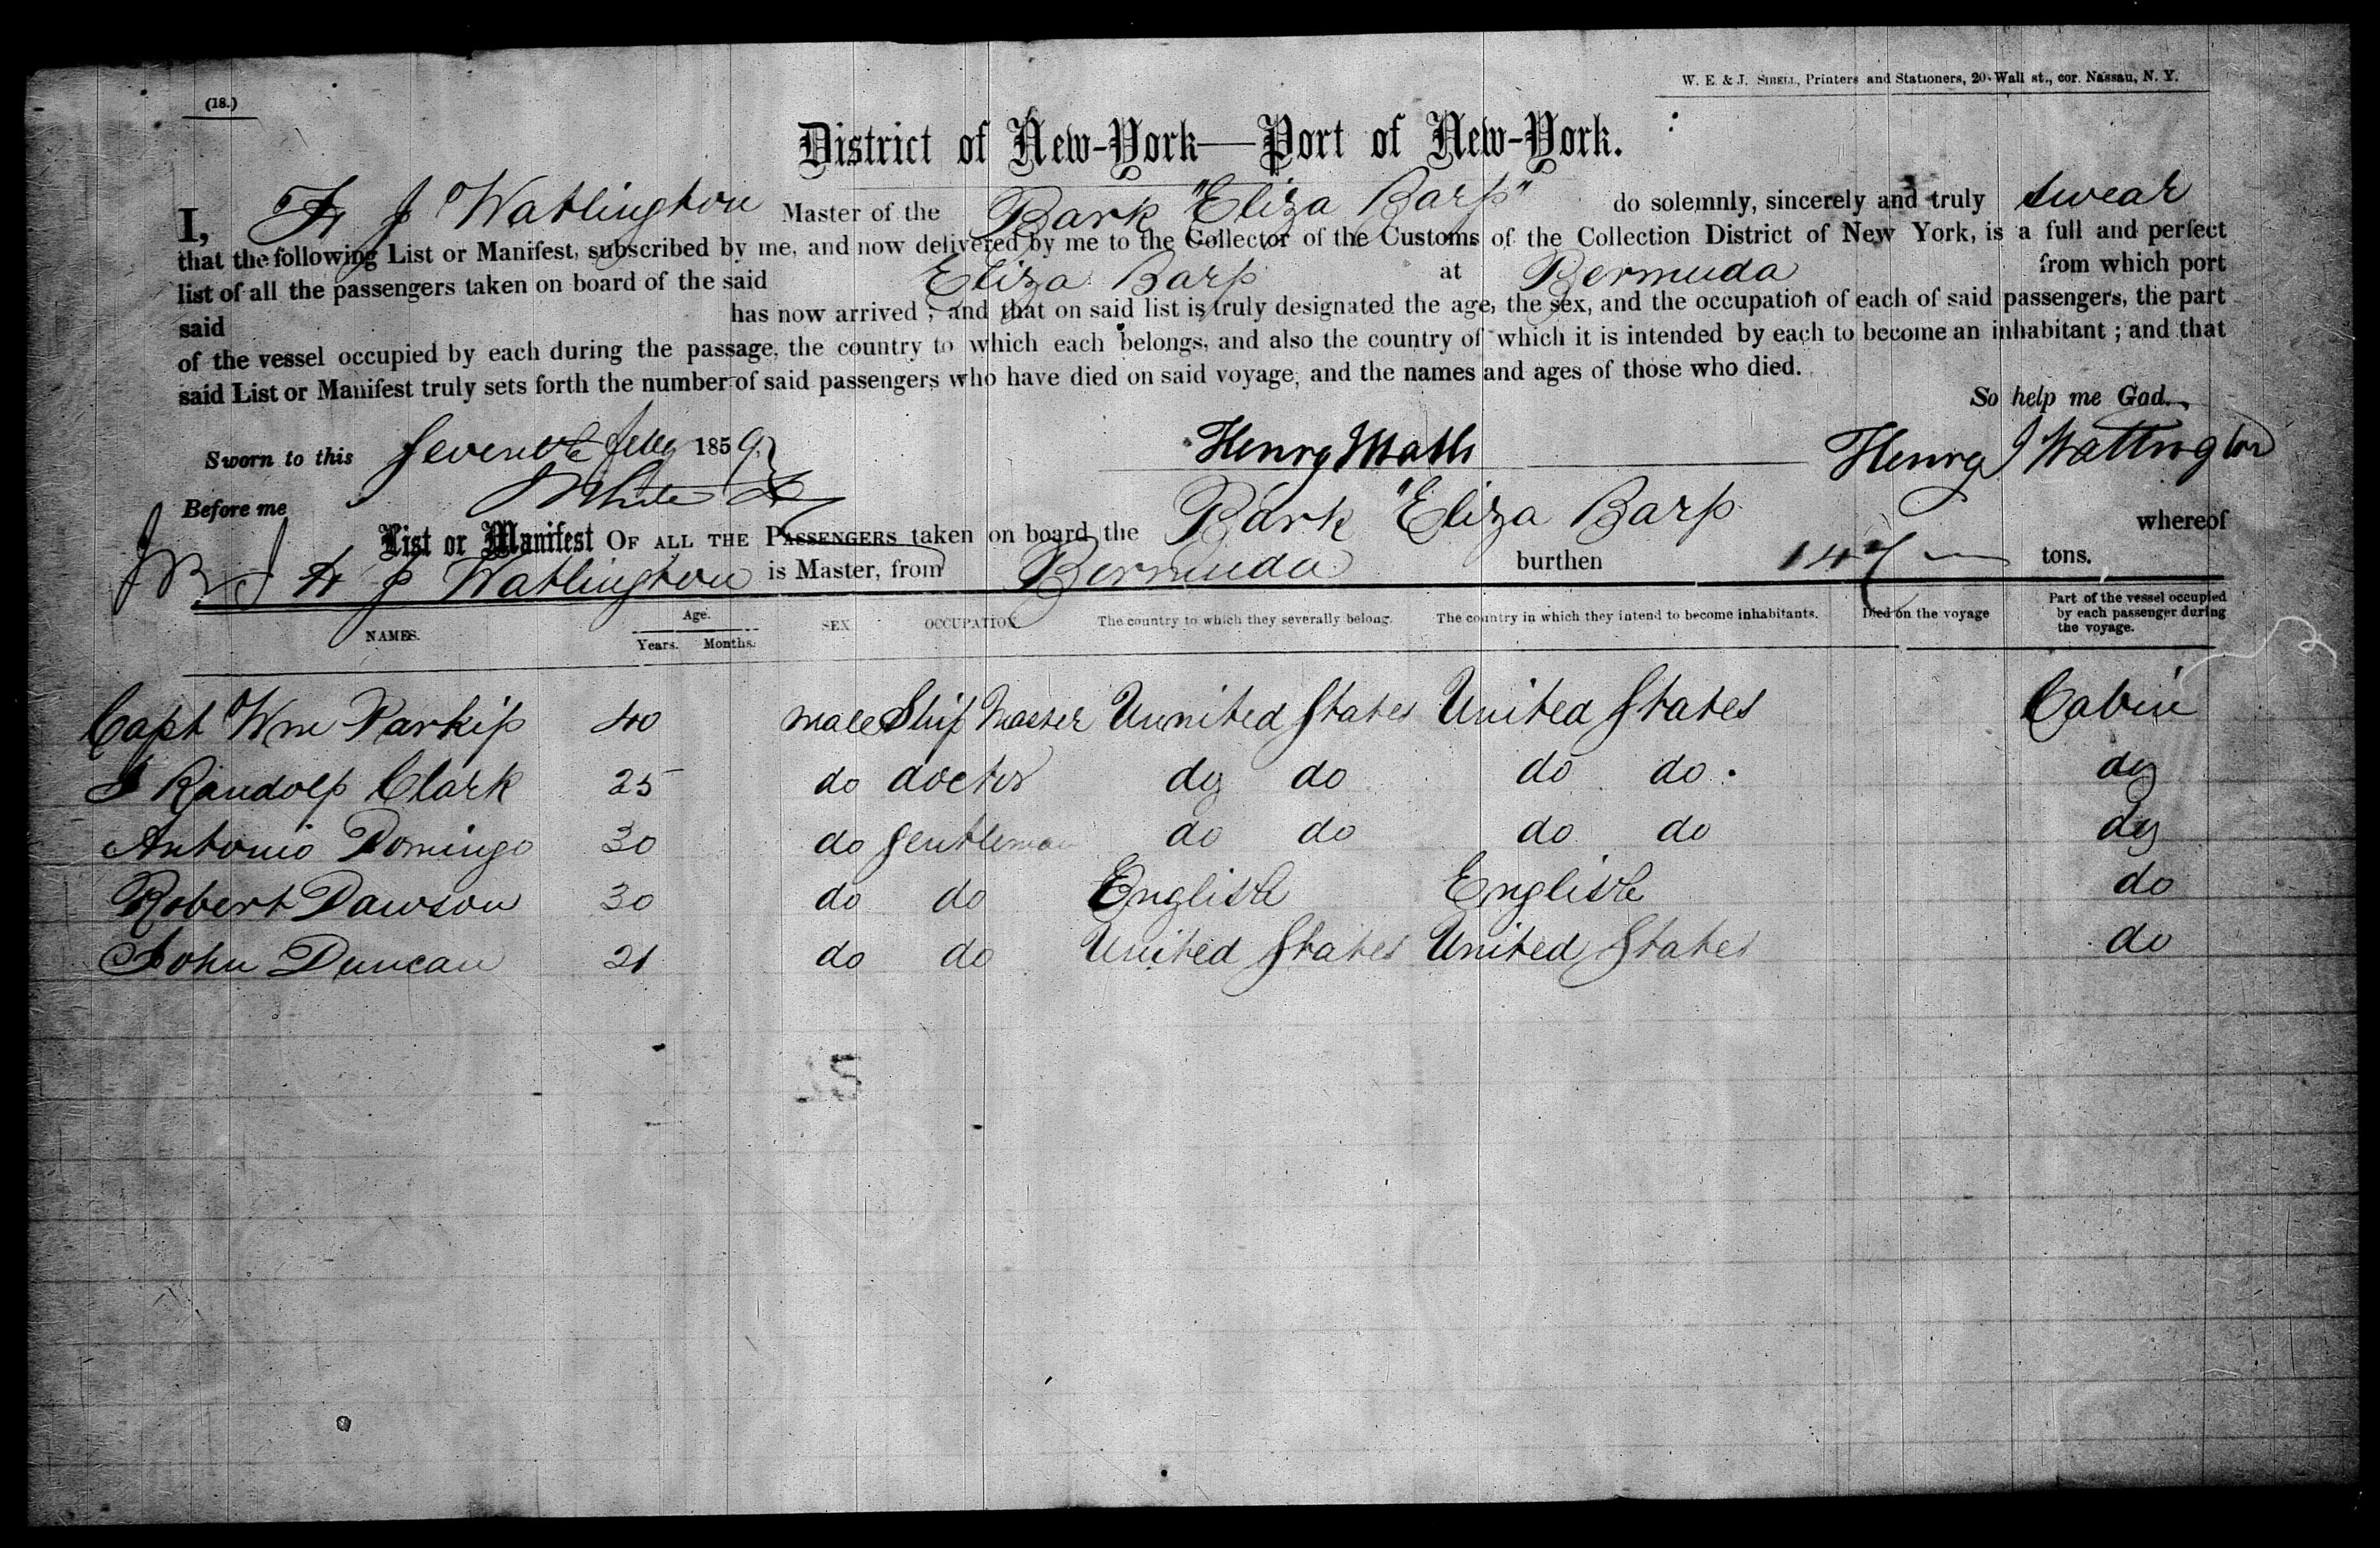 W. E. & J. SIBELL, Printers and Stationers, 20 Wall st., cor. Nassau, N. Y.
(18.)
District of New-York—Port of New-York.
I, H J Watlington Master of the Bark "Eliza Barss" do solemnly, sincerely and truly swear
that the following List or Manifest, subscribed by me, and now delivered by me to the Collector of the Customs of the Collection District of New York, is a full and perfect
list of all the passengers taken on board of the said Eliza Barss at Bermuda from which port
said has now arrived; and that on said list is truly designated the age, the sex, and the occupation of each of said passengers, the part
of the vessel occupied by each during the passage, the country to which each belongs, and also the country of which it is intended by each to become an inhabitant; and that
said List or Manifest truly sets forth the number of said passengers who have died on said voyage, and the names and ages of those who died.
So help me God.
Sworn to this Seventh July 1859. Henry Watl Henry J Watlington
Before me
List or Manifest OF ALL THE PASSENGERS taken on board the Bark "Eliza Barss whereof
H J Watlington is Master, from Bermuda burthen 147 tons.
NAMES. Age. Years. Months. SEX OCCUPATION The country to which they severally belong. The country in which they intend to become inhabitants. Died on the voyage Part of the vessel occupied by each passenger during the voyage.
Capt Wm 40 male Ship Master Uunited States United States Cabin
J Randolp Clark 25 do doctor do do do do do
Antonio Domingo 30 do Gentleman do do do do do
Robert Dawson 30 do do English English do
John Duncan 21 do do United States United States do